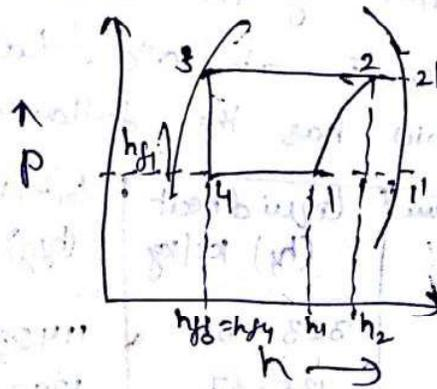 3
2
2'
↑
P
hf1
4
1
1'
hf3 = hf4
h1
h2
h →